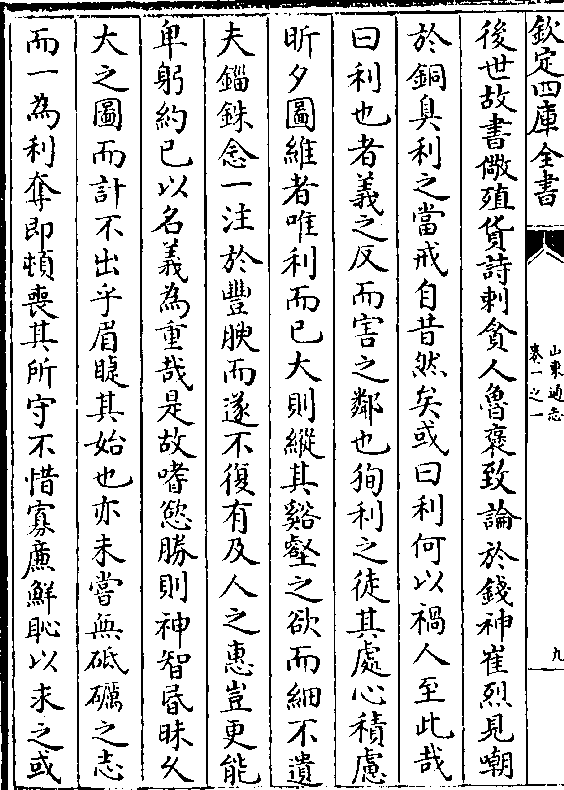 欽定四庫全書
山東通志
卷一之一
九
後世故書儆殖貨詩刺貪人魯褒致論於錢神崔烈見嘲
於銅臭利之當戒自昔然矣或曰利何以禍人至此哉
曰利也者義之反而害之鄰也徇利之徒其處心積慮
昕夕圖維者唯利而已大則縱其谿壑之欲而細不遺
夫錙銖念一注於豐腴而遂不復有及人之惠豈更能
卑躬約已以名義為重哉是故嗜慾勝則神智昏昧久
大之圖而計不出乎眉睫其始也亦未嘗無砥礪之志
而一為利奪即頓喪其所守不惜寡廉鮮恥以求之或